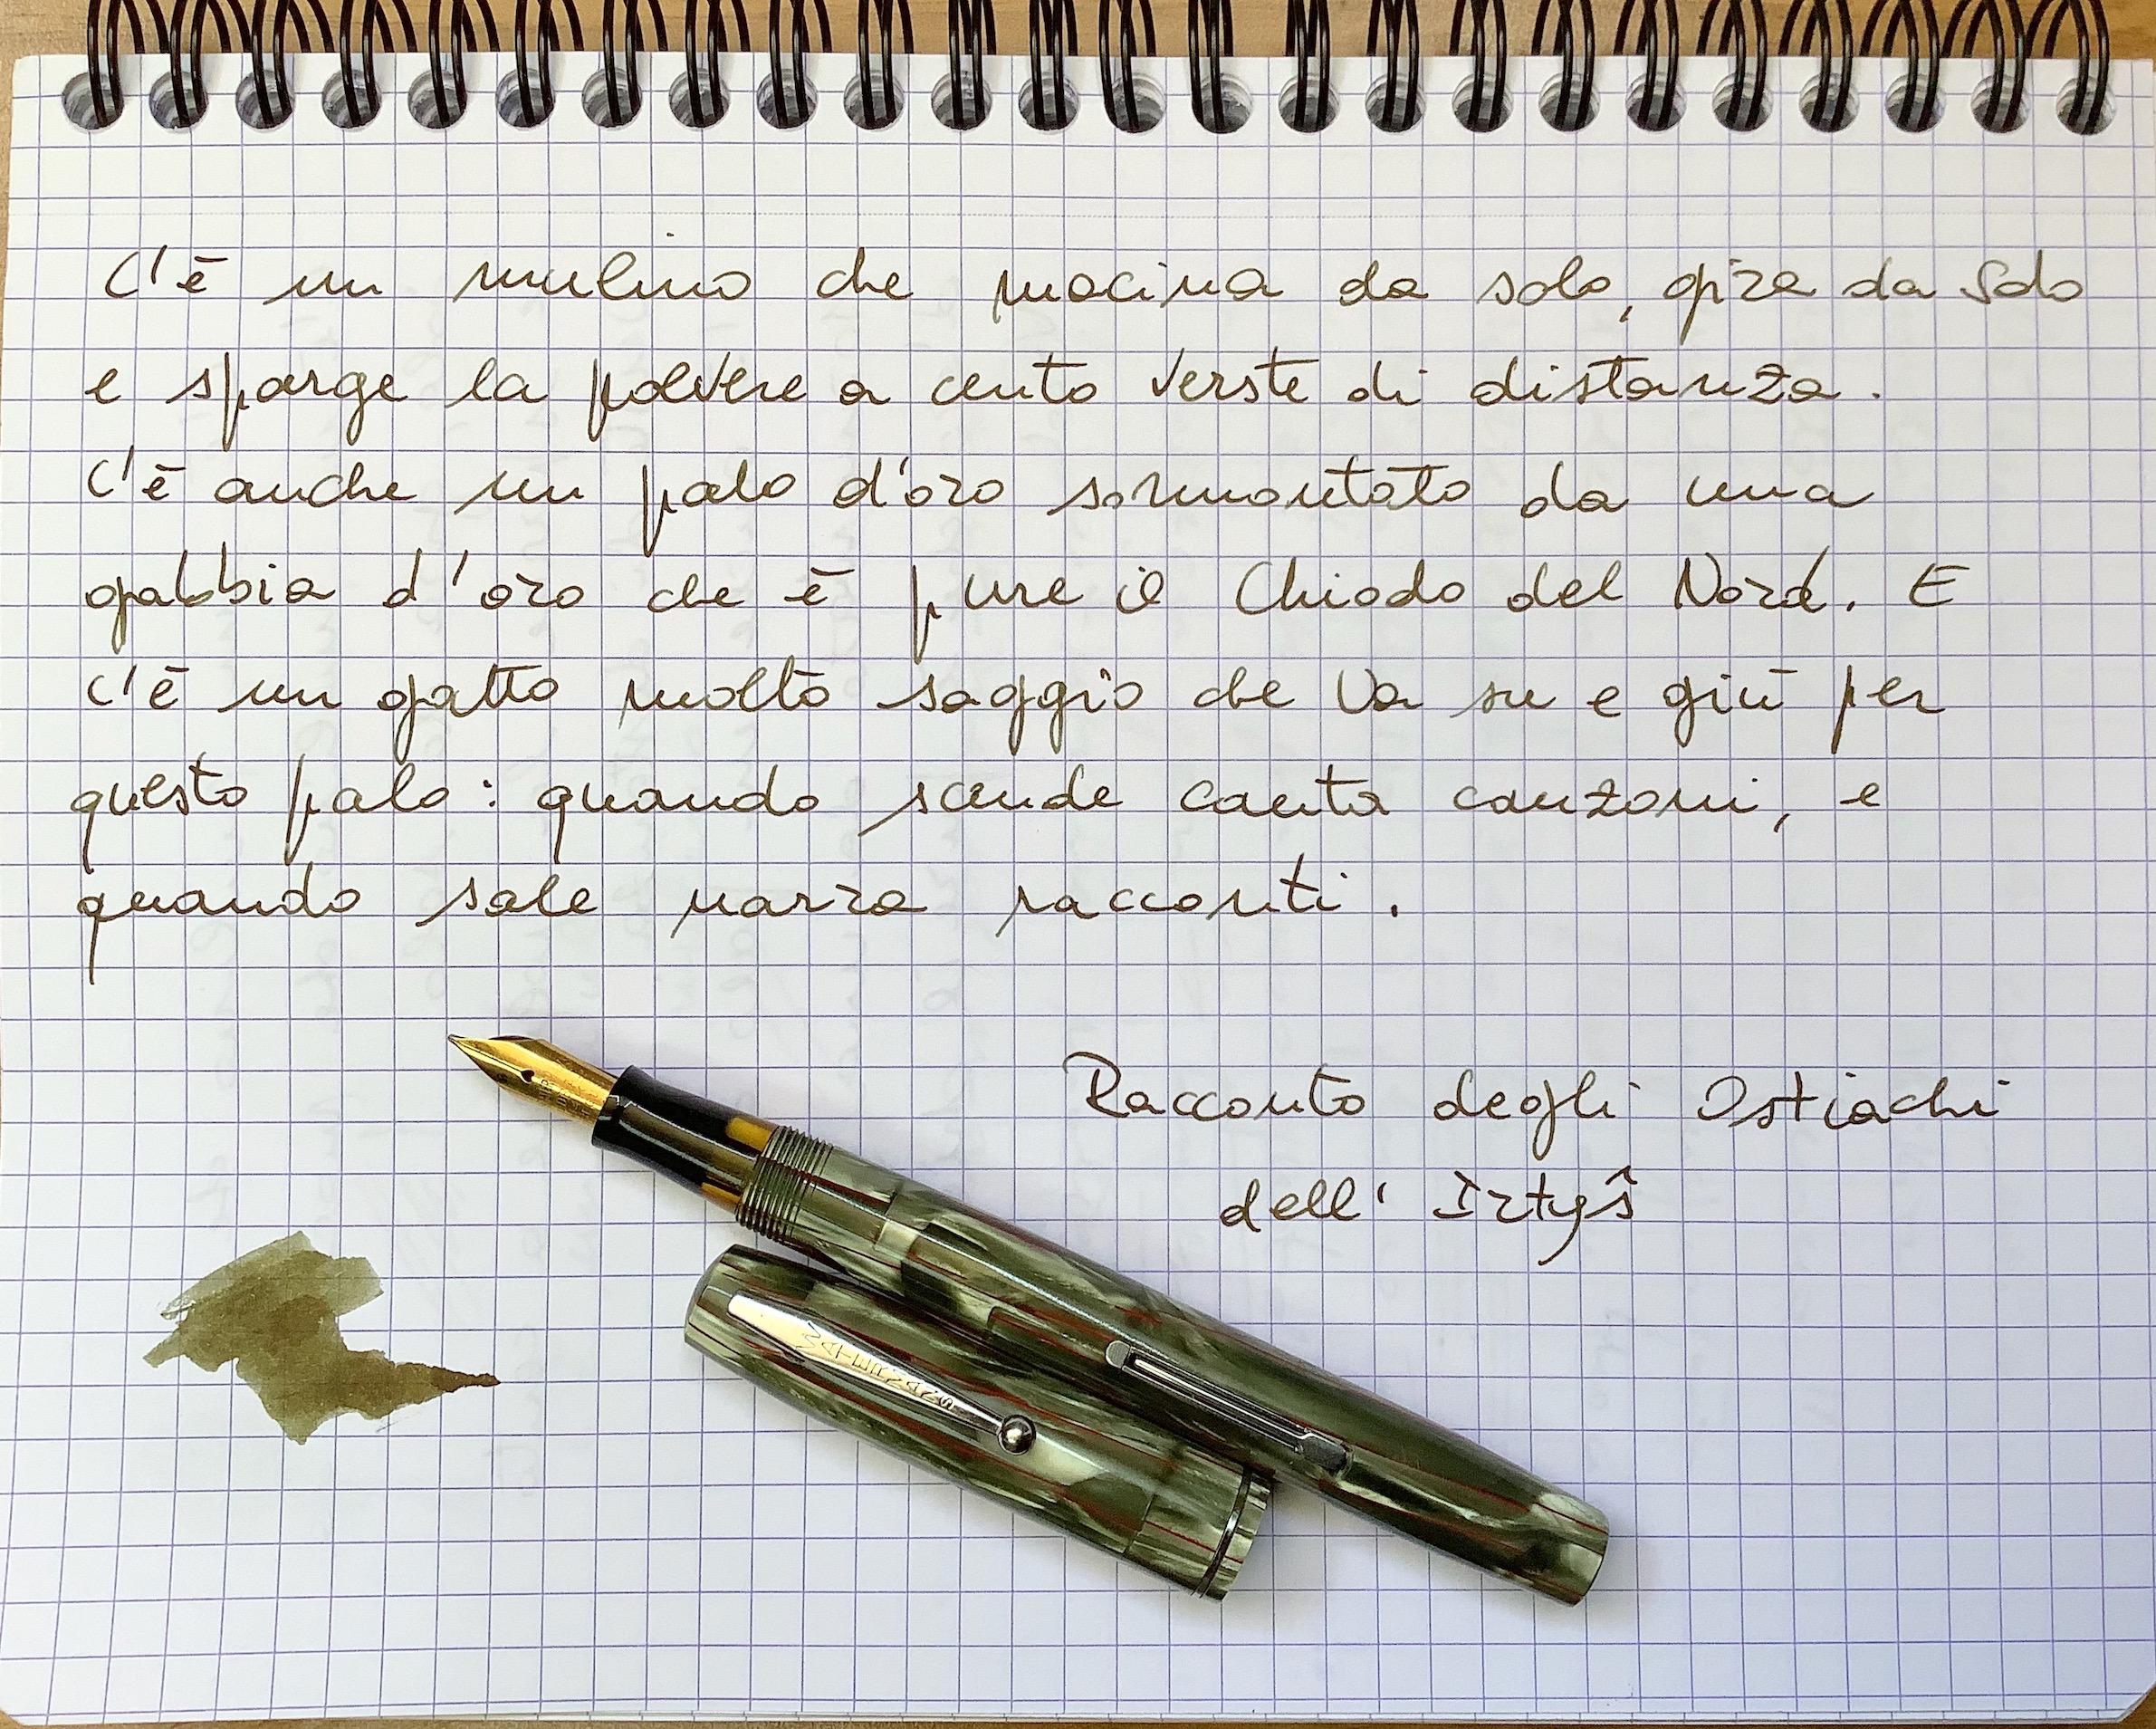 C'è un mulino che macina da solo, gira da solo
e sparge la polvere a cento verste di distanza.
C'è anche un palo d'oro sormontato da una
gabbia d'oro che è pure il Chiodo del Nord. E
c'è un gatto molto saggio che va su e giù per
questo palo: quando scende canta canzoni, e
quando sale narra racconti.
Racconto degli Ostiachi
dell' Irtyš
WATERMANS